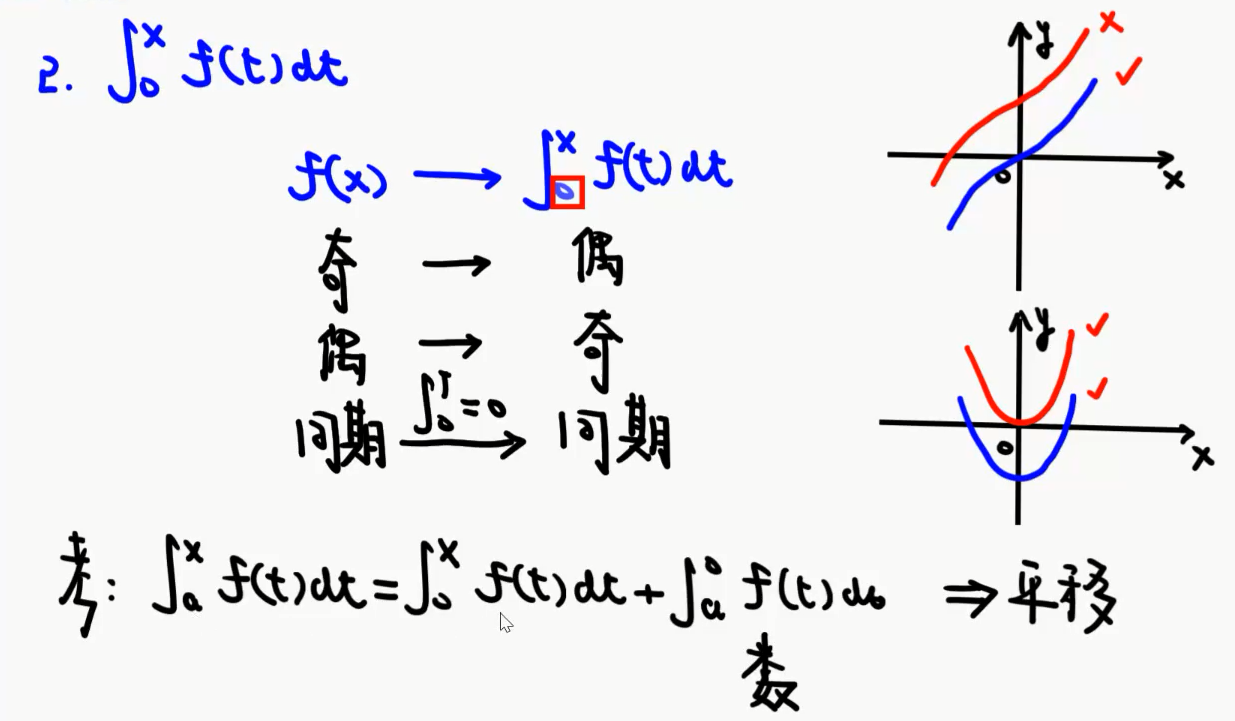 2. ∫₀ˣ f(t)dt
f(x) → ∫₀ˣ f(t)dt
奇 → 偶
偶 → 奇
周期 ∫₀ᵀ=0 → 周期
考: ∫ₐˣ f(t)dt = ∫₀ˣ f(t)dt + ∫ₐ⁰ f(t)dt ⇒ 平移
数
y
×
✓
0
x
y
✓
✓
0
x